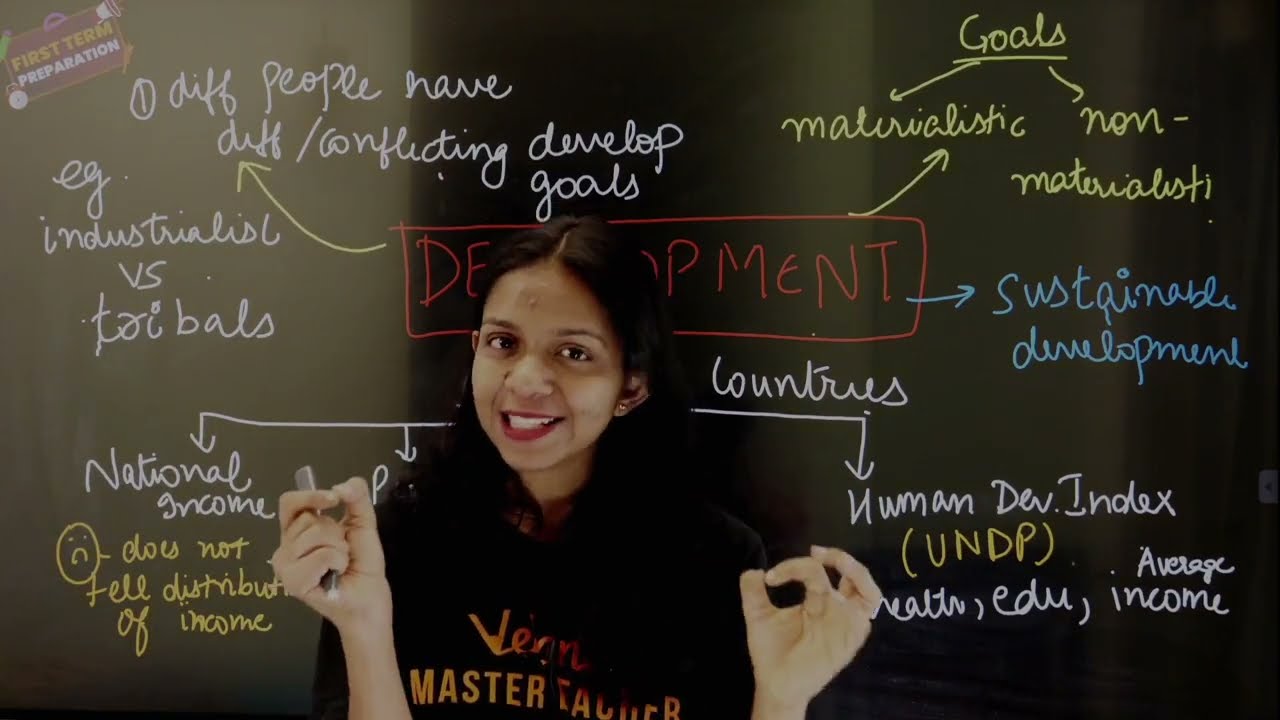 FIRST TERM
PREPARATION
① diff people have
diff/conflicting develop
goals
eg.
industrialist
vs
tribals
Goals
materialistic
non-
materialisti
DE OPMENT
Sustainable
development
Countries
National
Income
P
☹ - does not
tell distributi
of income
Human Dev. Index
(UNDP)
health, edu, Average
income
MASTER TEACHER